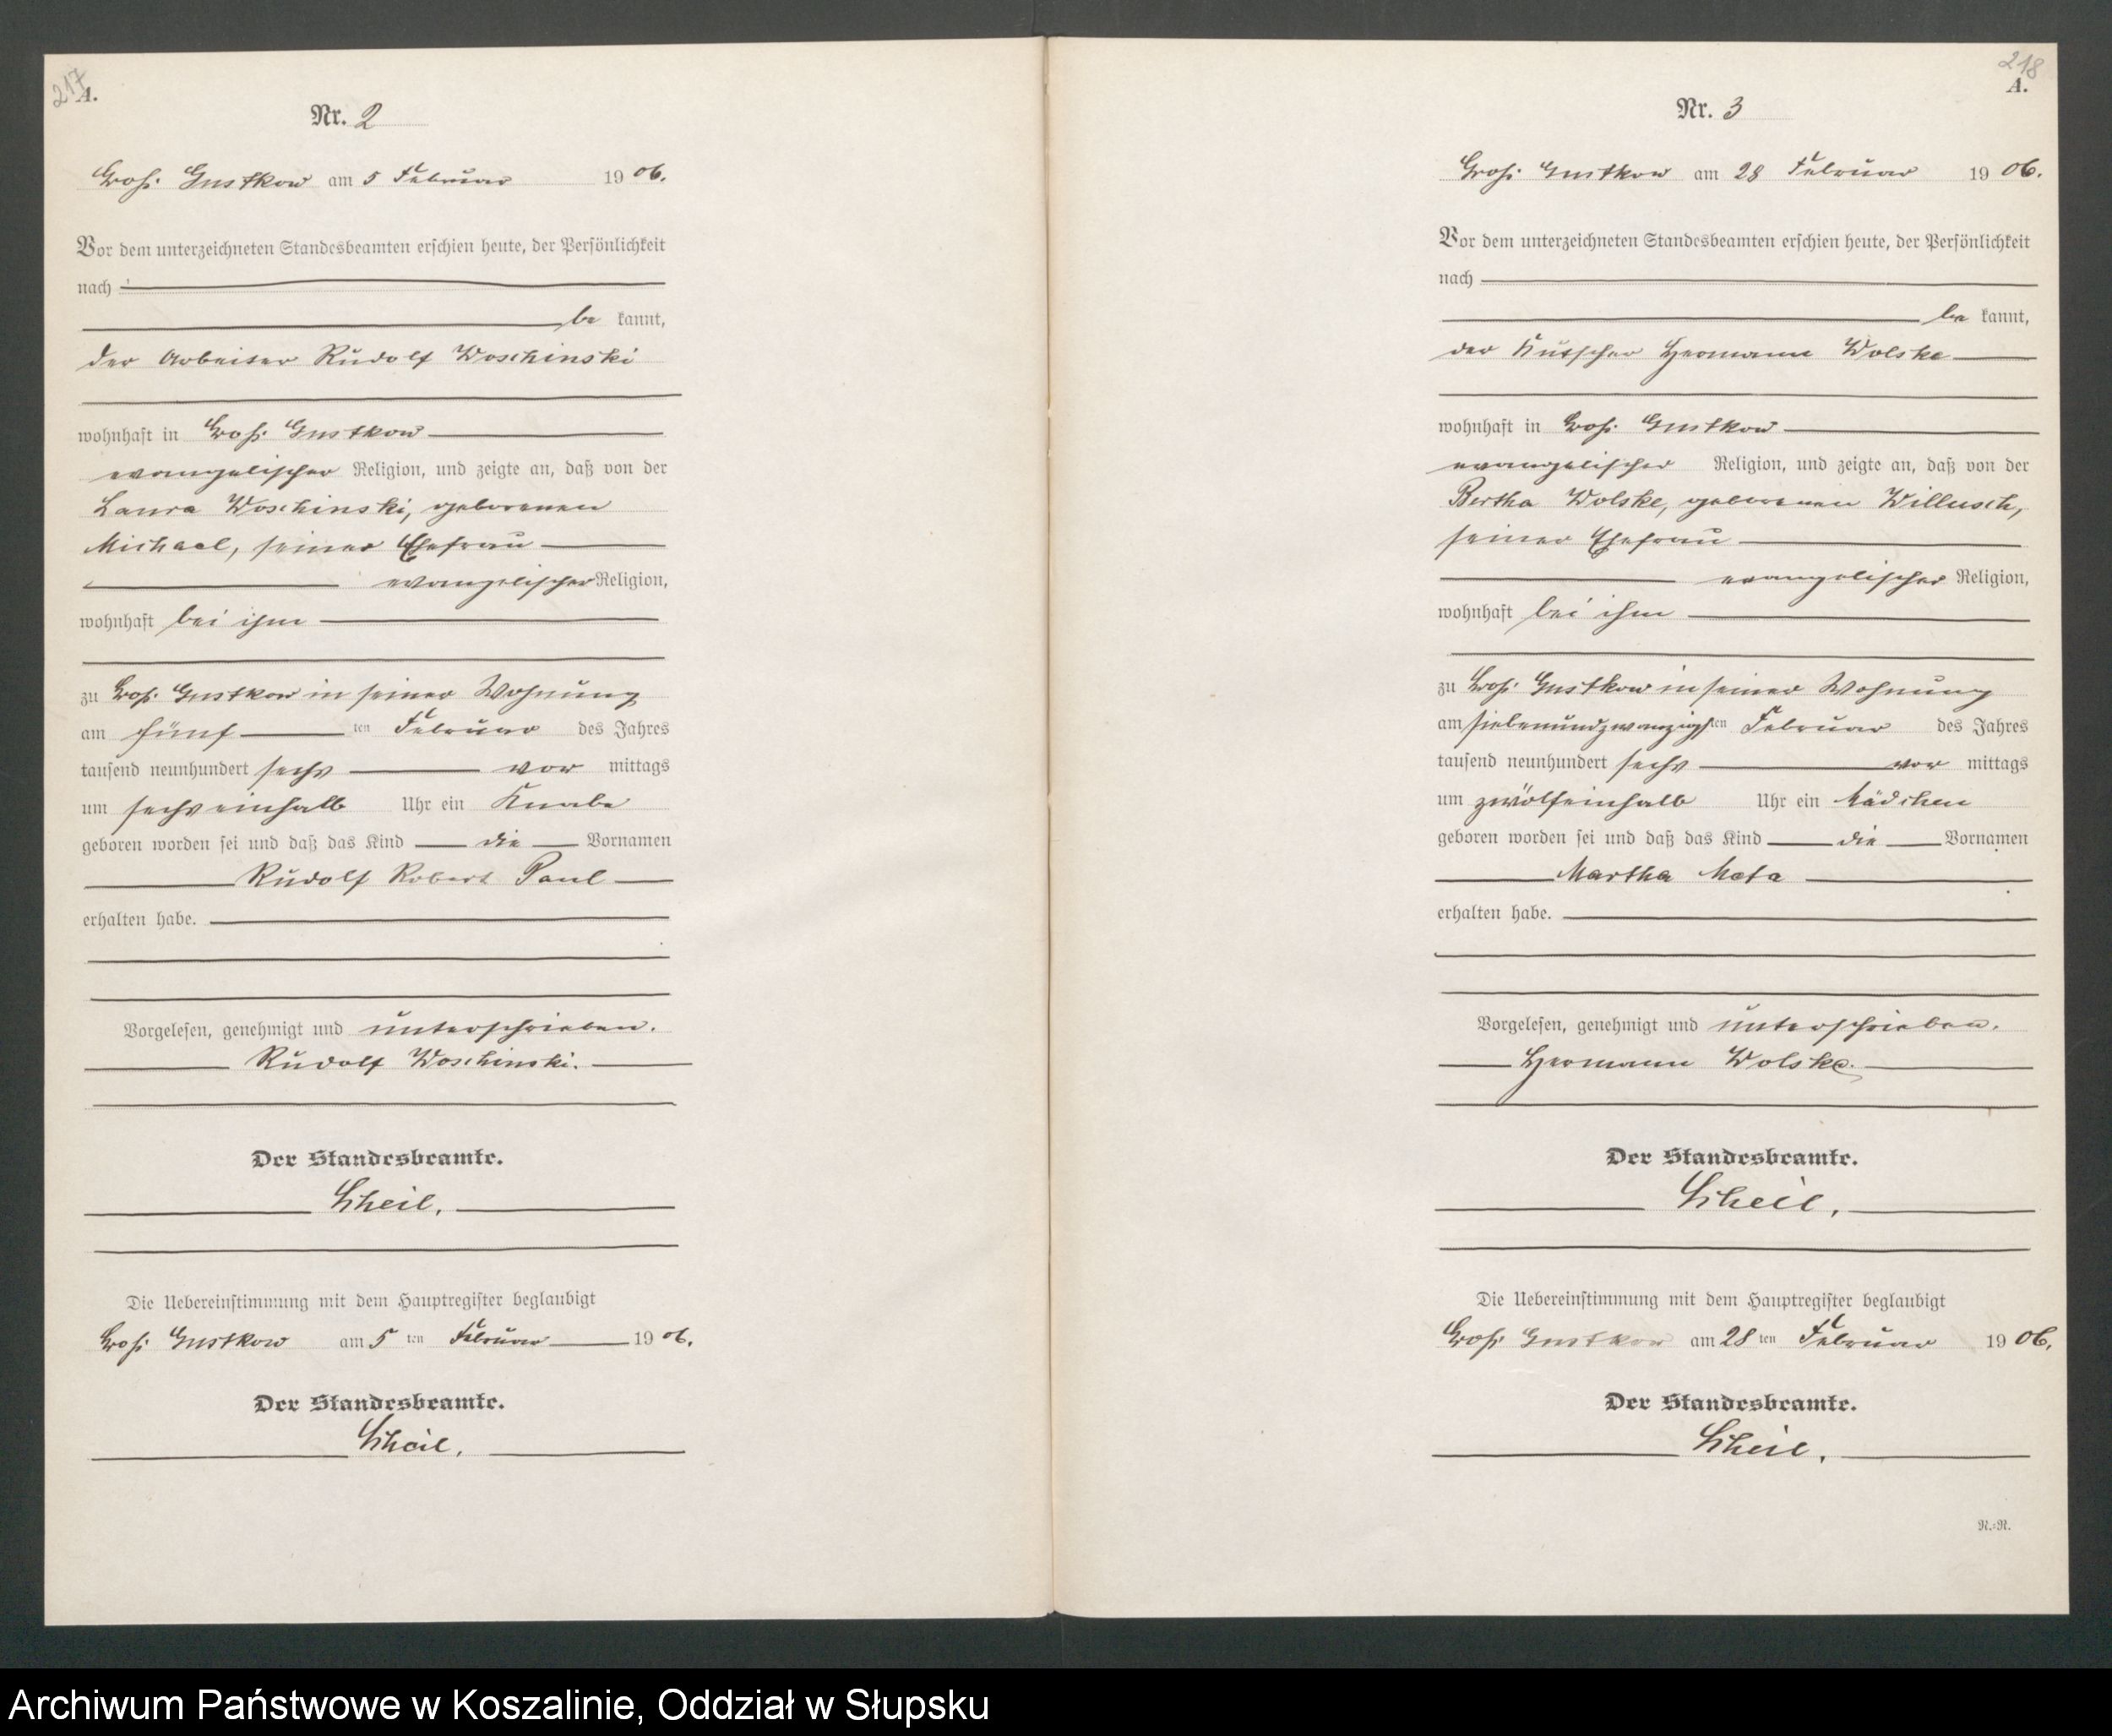 217
A.
Nr. 2
Groß Gustkow am 5 Februar 1906.
Vor dem unterzeichneten Standesbeamten erschien heute, der Persönlichkeit
nach
be kannt,
der Arbeiter Rudolf Woschinski
wohnhaft in Groß Gustkow
evangelischer Religion, und zeigte an, daß von der
Laura Woschinski, geborenen
Michael, seiner Ehefrau
evangelischer Religion,
wohnhaft bei ihm
zu Groß Gustkow in seiner Wohnung
am fünf ten Februar des Jahres
tausend neunhundert sechs vor mittags
um sechseinhalb Uhr ein Knabe
geboren worden sei und daß das Kind die Vornamen
Rudolf Robert Paul
erhalten habe.
Vorgelesen, genehmigt und unterschrieben.
Rudolf Woschinski.
Der Standesbeamte.
Scheil.
Die Uebereinstimmung mit dem Hauptregister beglaubigt
Groß Gustkow am 5 ten Februar 1906.
Der Standesbeamte.
Scheil.
218
A.
Nr. 3
Groß Gustkow am 28 Februar 1906.
Vor dem unterzeichneten Standesbeamten erschien heute, der Persönlichkeit
nach
be kannt,
der Kutscher Hermann Wolske
wohnhaft in Groß Gustkow
evangelischer Religion, und zeigte an, daß von der
Bertha Wolske, geborenen Willusch,
seiner Ehefrau
evangelischer Religion,
wohnhaft bei ihm
zu Groß Gustkow in seiner Wohnung
am siebenundzwanzigsten Februar des Jahres
tausend neunhundert sechs vor mittags
um zwölfeinhalb Uhr ein Mädchen
geboren worden sei und daß das Kind die Vornamen
Martha Meta
erhalten habe.
Vorgelesen, genehmigt und unterschrieben.
Hermann Wolske.
Der Standesbeamte.
Scheil.
Die Uebereinstimmung mit dem Hauptregister beglaubigt
Groß Gustkow am 28 ten Februar 1906.
Der Standesbeamte.
Scheil.
N.=N.
Archiwum Państwowe w Koszalinie, Oddział w Słupsku